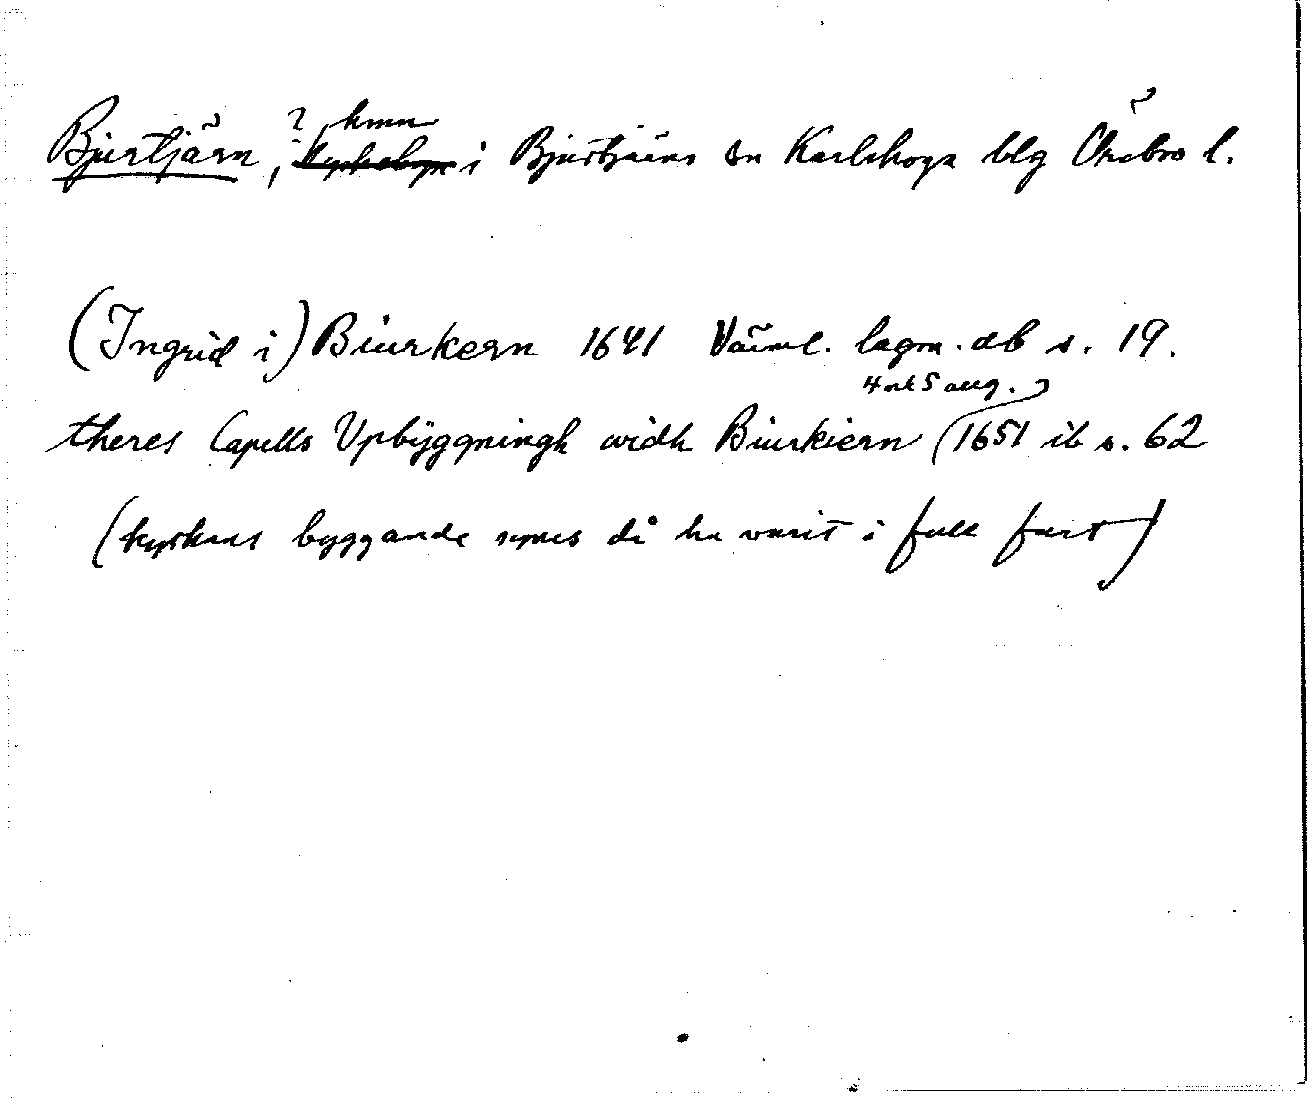 Bjurtjärn, ? hmn i Bjurtjärns sn Karlskoga blg Örebro l.
(Ingrid i) Biurkern 1641 Värml. lagm. db s. 19.
4 och 5 aug.
theres Capells Upbÿggningh widh Biurkiern (1651 ib s. 62
(kyrkans byggande synes då ha varit i full fart)